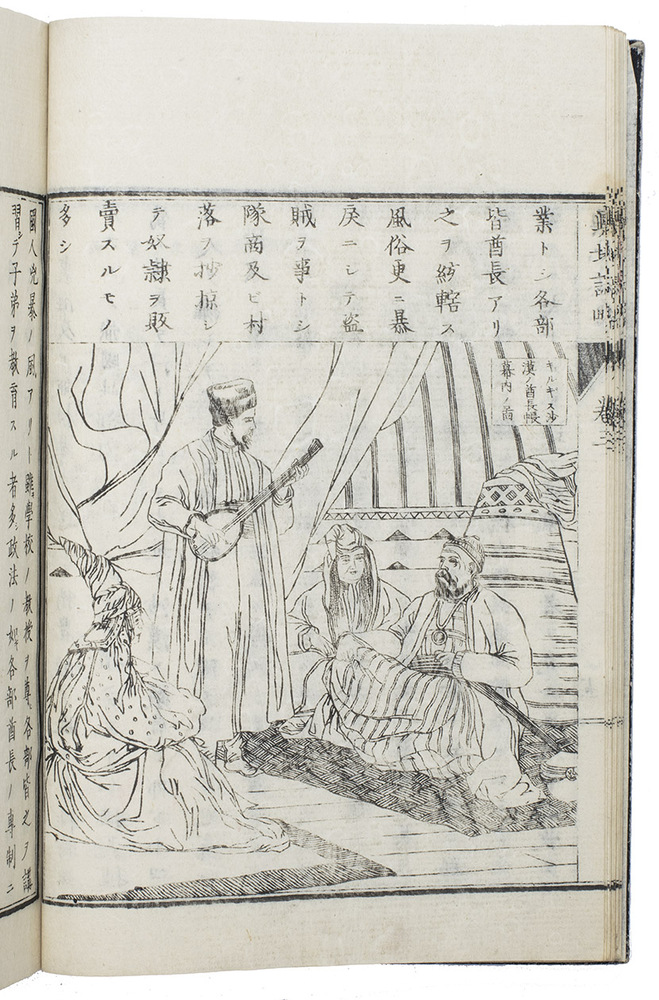 輿地誌略 卷三
業トシ各部
皆酋長アリ
之ヲ統轄ス
風俗更ニ暴
戾ニシテ盜
賊ヲ事トシ
隊商及ビ村
落ヲ抄掠シ
テ奴隷ヲ販
賣スルモノ
多シ
キルギス沙
漠ノ酋長帳
幕内ノ圖
國人兇暴ノ風アリト雖學校ノ教授ヲ尊ミ各部皆之ヲ講
習シテ子弟ヲ教育スル者多シ政法ノ如キ各部酋長ノ專制ニ